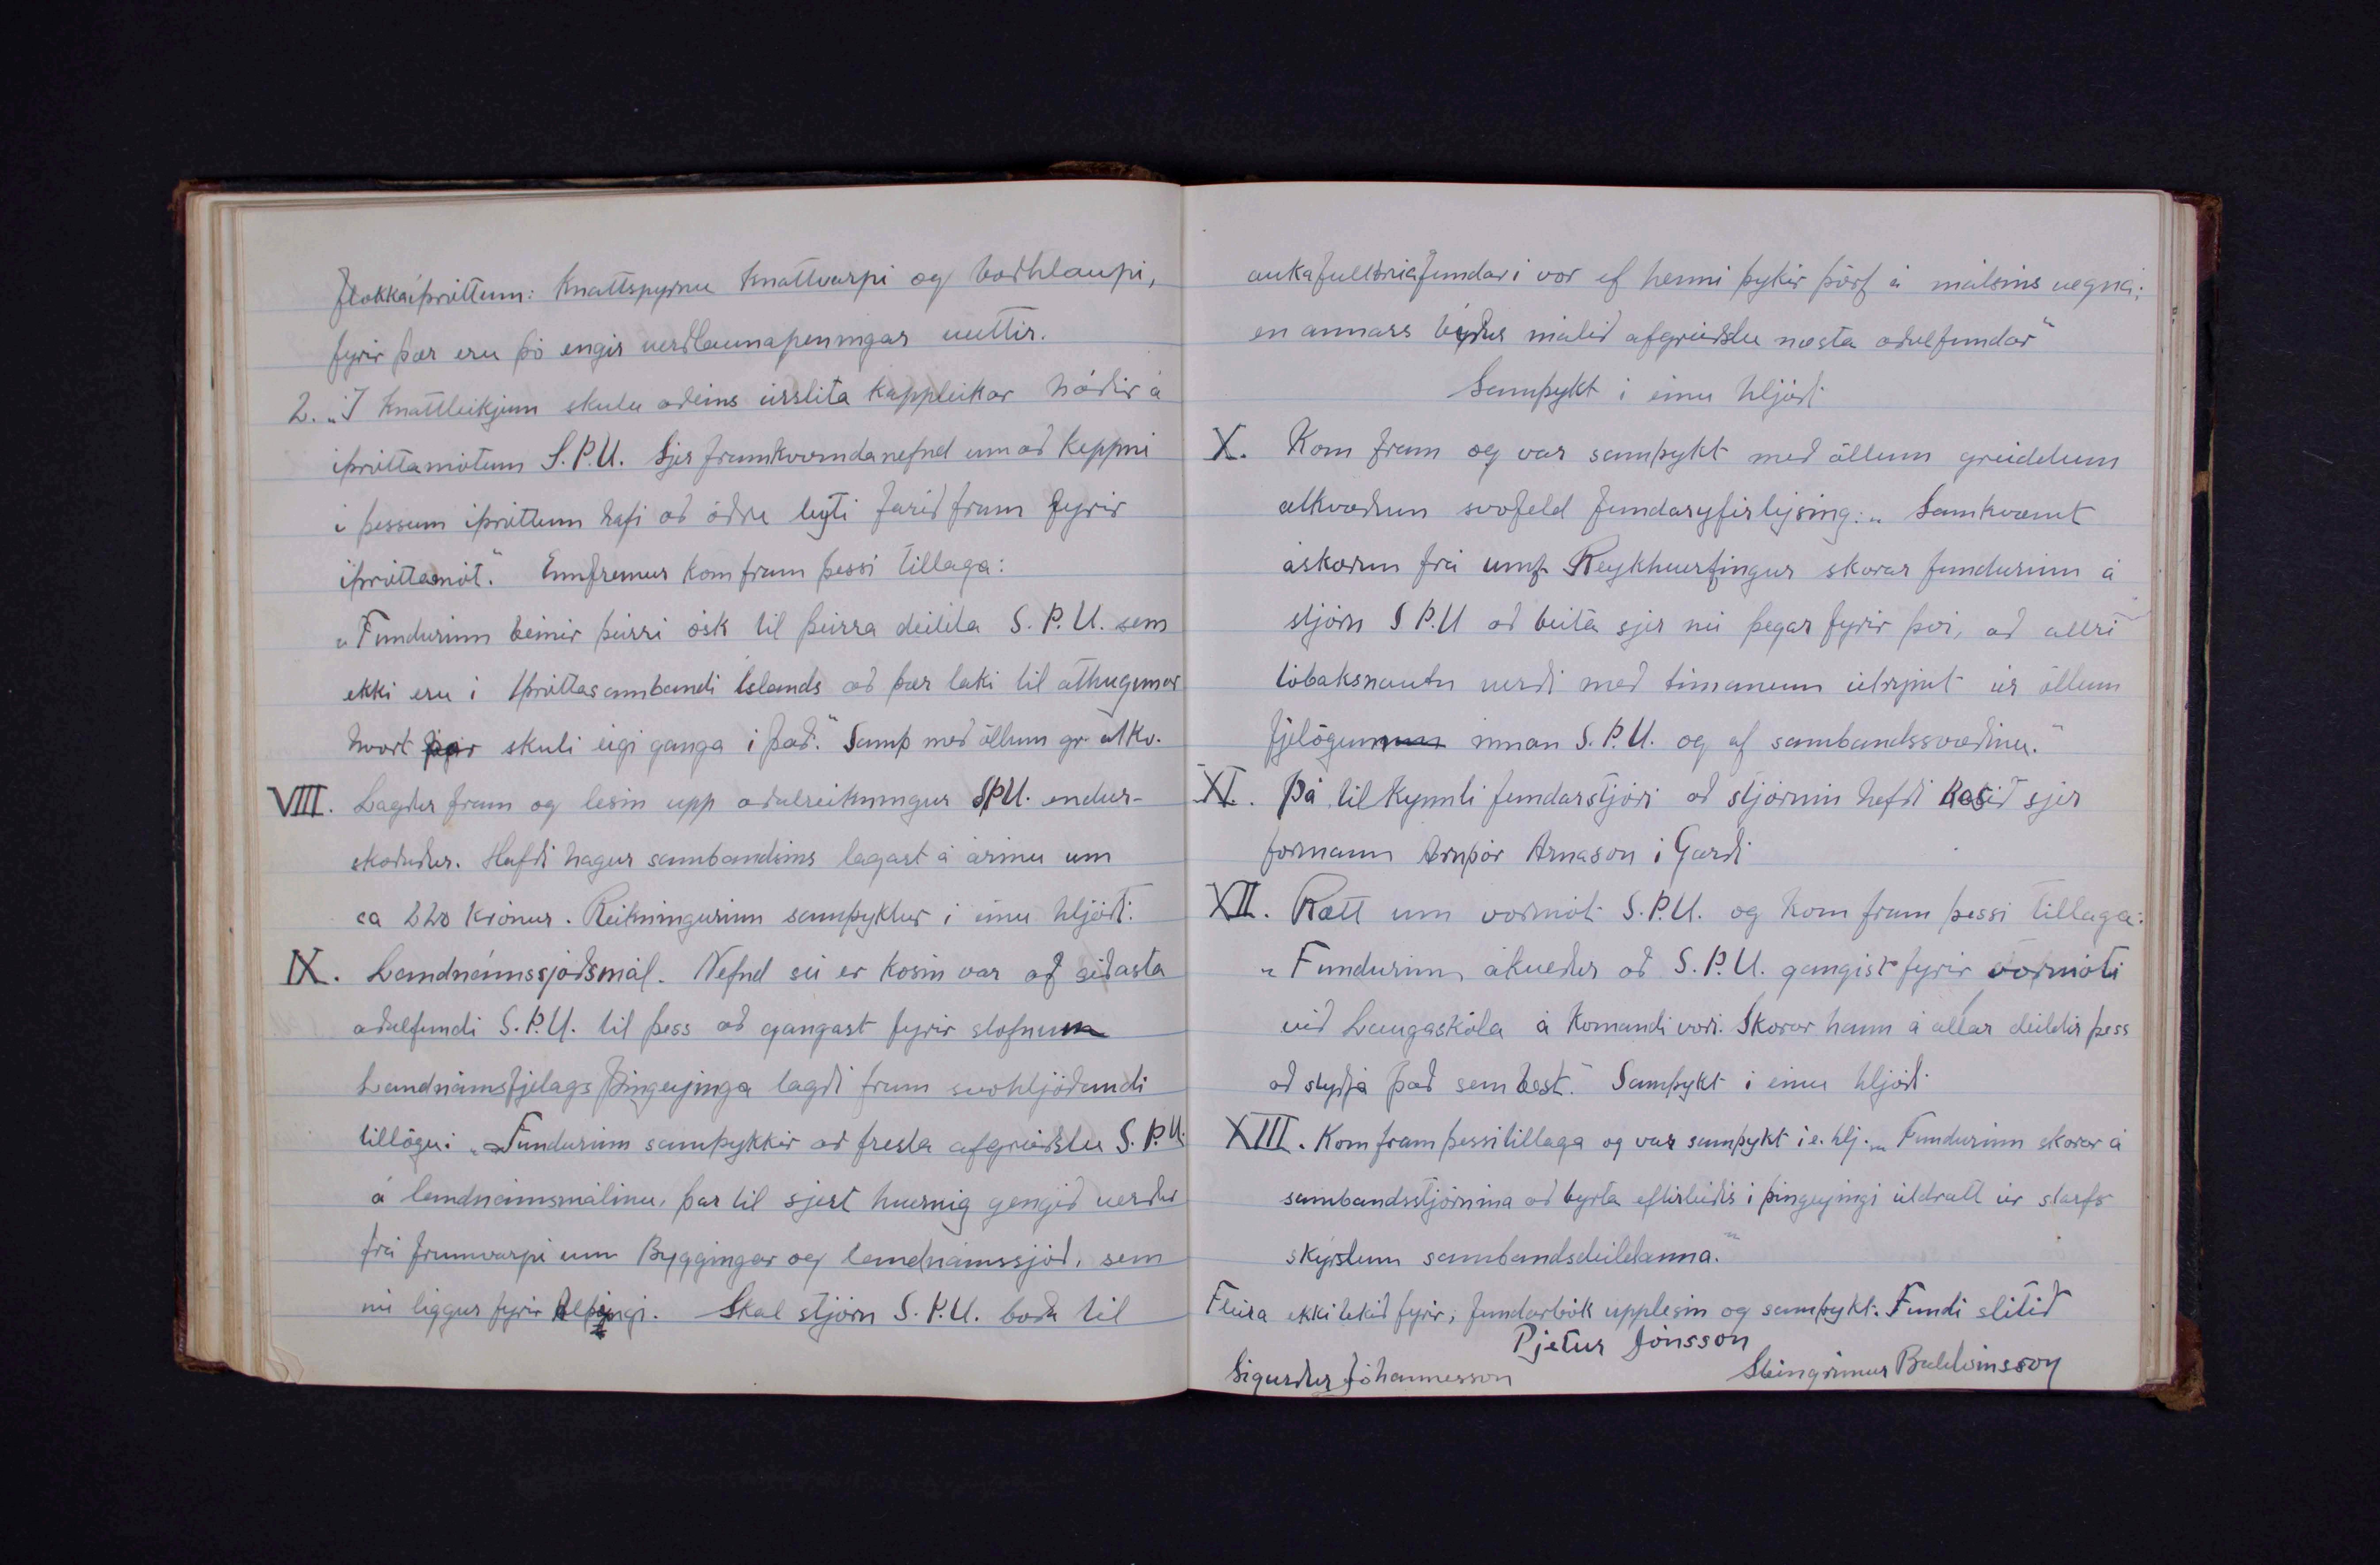 flokkaíþróttum: Knattspyrnu Knattvarpi og boðhlaupi,
fyrir þær eru þó engir verðlaunapeningar veittir.
2. „Í Knattleikjum skulu aðeins úrslita kappleikar háðir á
íþróttamótum S.Þ.U. Sjer framkvæmdanefnd um að keppni
í þessum íþróttum hafi að öðru leyti farið fram fyrir
íþróttamót.“ Ennfremur kom fram þessi tillaga:
„Fundurinn beinir þeirri ósk til þeirra deilda S.Þ.U. sem
ekki eru í Íþróttasambandi Íslands að þær taki til athugunar
hvort þær skuli eigi ganga í það.“ Samþ með öllum gr. atkv.
VIII. Lagður fram og lesin upp aðalreikningur SÞU. endur-
skoðaður. Hafði hagur sambandsins lagast á árinu um
ca 220 krónur. Reikningurinn samþyktur í einu hljóði.
IX. Landnámssjóðsmál. Nefnd sú er kosin var af síðasta
aðalfundi S.Þ.U. til þess að gangast fyrir stofnun
Landnámsfjelags Þingeyinga lagði fram svohljóðandi
tillögu: „Fundurinn samþykkir að fresta afgreiðslu S.Þ.U.
á landnámsmálinu, þar til sjest hvernig gengið verður
frá frumvarpi um Byggingar og landnámssjóð, sem
nú liggur fyrir Alþingi. Skal stjórn S.Þ.U. boða til
aukafulltrúafundar í vor ef henni þykir þörf á málsins vegna;
en annars bíður málið afgreiðslu næsta aðalfundar“
Samþykt í einu hljóði
X. Kom fram og var samþykt með öllum greiddum
atkvæðum svofeld fundaryfirlýsing: „Samkvæmt
áskorun frá umf. Reykhverfingur skorar fundurinn á
stjórn S Þ.U að beita sjer nú þegar fyrir því, að allri
tóbaksnautn verði með tímanum útrýmt úr öllum
fjelögum innan S.Þ.U. og af sambandssvæðinu.“
XI. Þá tilkynnti fundarstjóri að stjórnin hefði kosið sjer
formann Arnþór Árnason í Garði
XII. Rætt um vormót S.Þ.U. og kom fram þessi tillaga:
„Fundurinn ákveður að S.Þ.U. gangist fyrir vormóti
við Laugaskóla á komandi vori. Skorar hann á allar deildir þess
að styðja það sem best.“ Samþykt í einu hljóði
XIII. Kom fram þessi tillaga og var samþykt í e. hlj. „Fundurinn skorar á
sambandsstjórnina að byrta eftirleiðis í þingeyingi útdrátt úr starfs
skýrslum sambandsdeildanna.“
Fleira ekki tekið fyrir, fundarbók upplesin og samþykt. Fundi slitið
Pjetur Jónsson
Sigurður Jóhannesson Steingrímur Baldvinsson